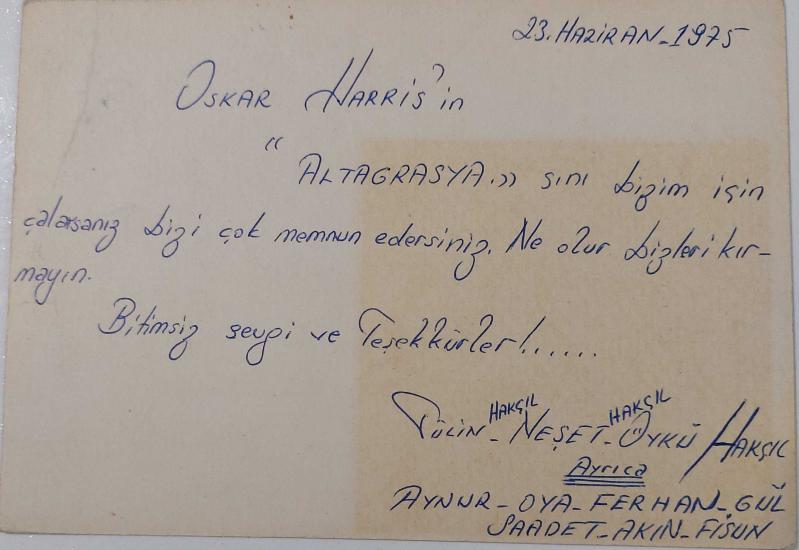 23. HAZİRAN - 1975
OSKAR HARRİS'in
"ALTAGRASYA.» sını bizim için
çalarsanız bizi çok memnun edersiniz. Ne olur bizleri kır-
mayın.
Bitimsiz sevgi ve Teşekkürler!......
HAKÇIL HAKÇIL
TÜLİN - NEŞET - ÖYKÜ HAKÇIL
Ayrıca
AYNUR - OYA - FERHAN - GÜL
SAADET - AKIN - FİSUN